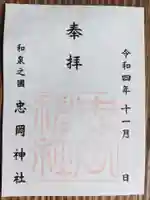 令和四年十一月 日
奉拝
和泉之國
忠岡神社